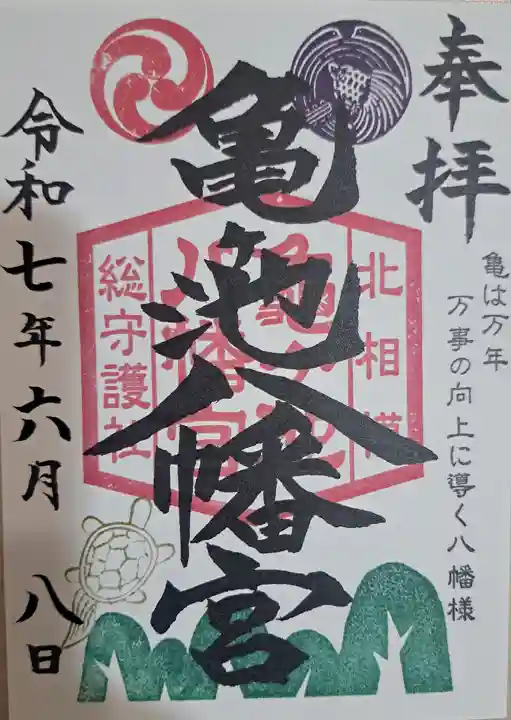 奉拝
亀は万年
万事の向上に導く八幡様
北相模
亀ヶ池
八幡宮
総守護社
亀池八幡宮
令和七年六月八日